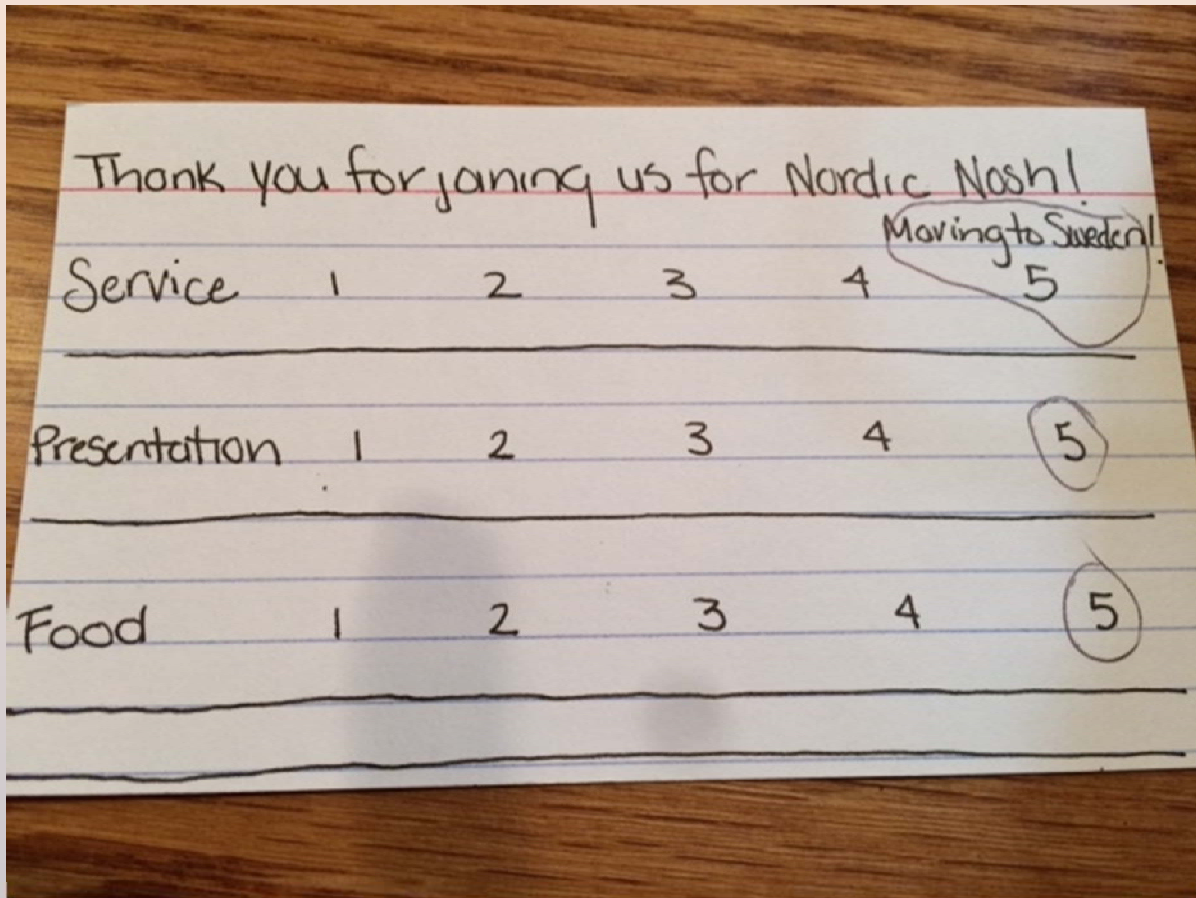 Thank you for joining us for Nordic Nosh!
Moving to Sweden!
Service 1 2 3 4 5
Presentation 1 2 3 4 5
Food 1 2 3 4 5